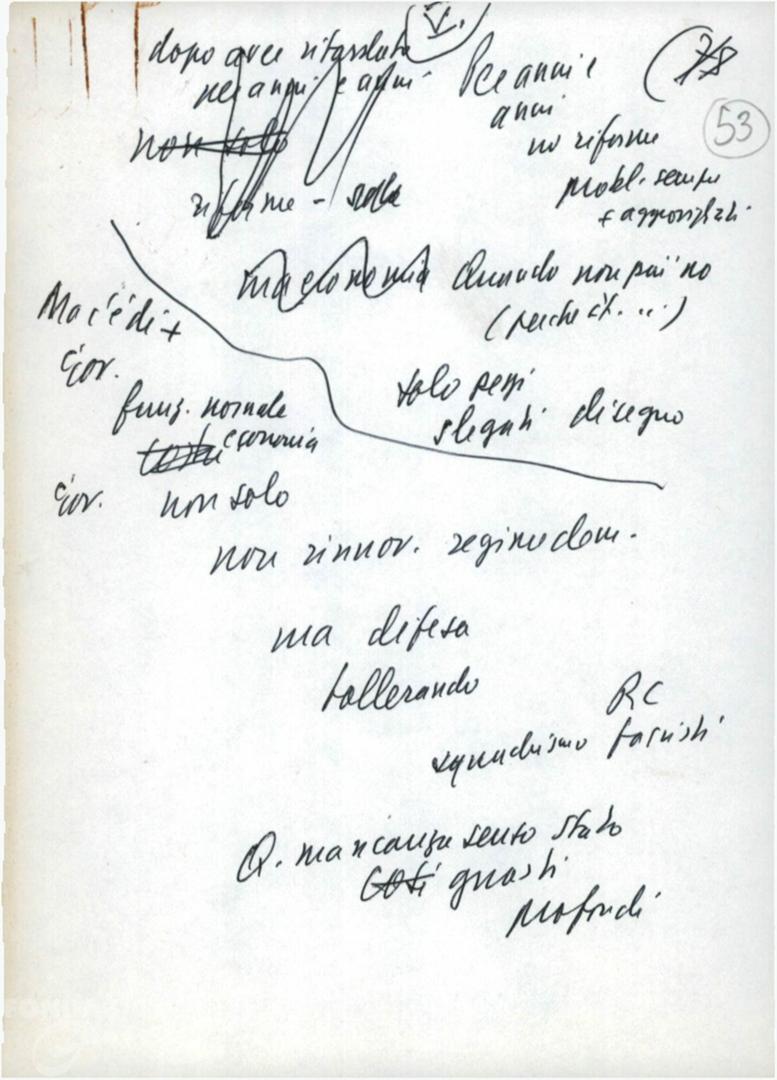 V.
7/8
53
dopo aver ritardato
per anni e anni
non solo
riforme -
Per anni e
anni
no riforme
probl. sempre
+ aggrovigliati
macronomia Quando non puoi no
(perché c'è. ...)
solo pezzi
slegati disegno
Ma c'è di +
Gov.
funz. normale
economia
Gov. non solo
non rinnov. regime dem.
ma difesa
tollerando
RC
squadrismo fascisti
Q. mancanza senso Stato
così guasti
profondi